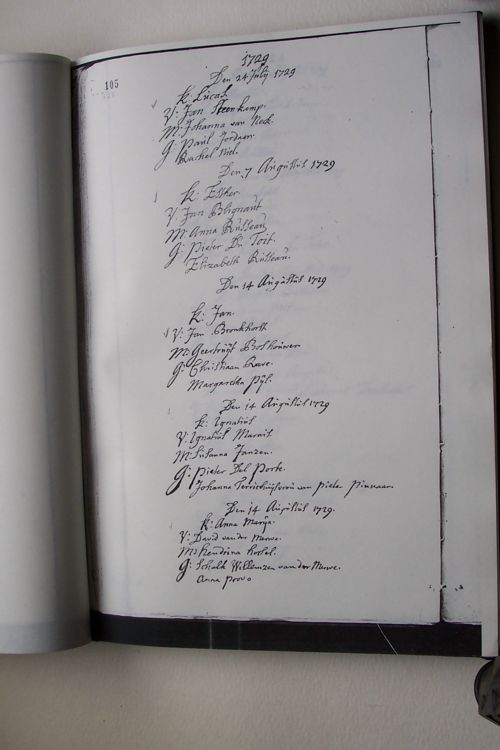 105
1729
Den 24 July 1729
K: Lucas.
V: Jan Steenkamp.
M: Johanna van Neck.
G: Paul Jordaen
Rachel Niel.
Den 7 Augustus 1729
K: Esther
V: Jan Blignaut
M: Anna Russeau
G: Pieter Du Toit.
Elizabeth Russeau.
Den 14 Augustus 1729
K: Jan.
V: Jan Bronkhorst
M: Geertruijt
G: Christiaan
Margareta Pijl.
Den 14 Augustus 1729
K: Ignatius
V: Ignatius Marais.
M: Susanna Janzen.
G: Pieter Del Porte.
Johanna van Pieter Pinnaar.
Den 14 Augustus 1729.
K: Anna Marija
V: David van der Merwe.
M: Hendrina
G: Schalk Willemzen van der Merwe.
Anna Provo